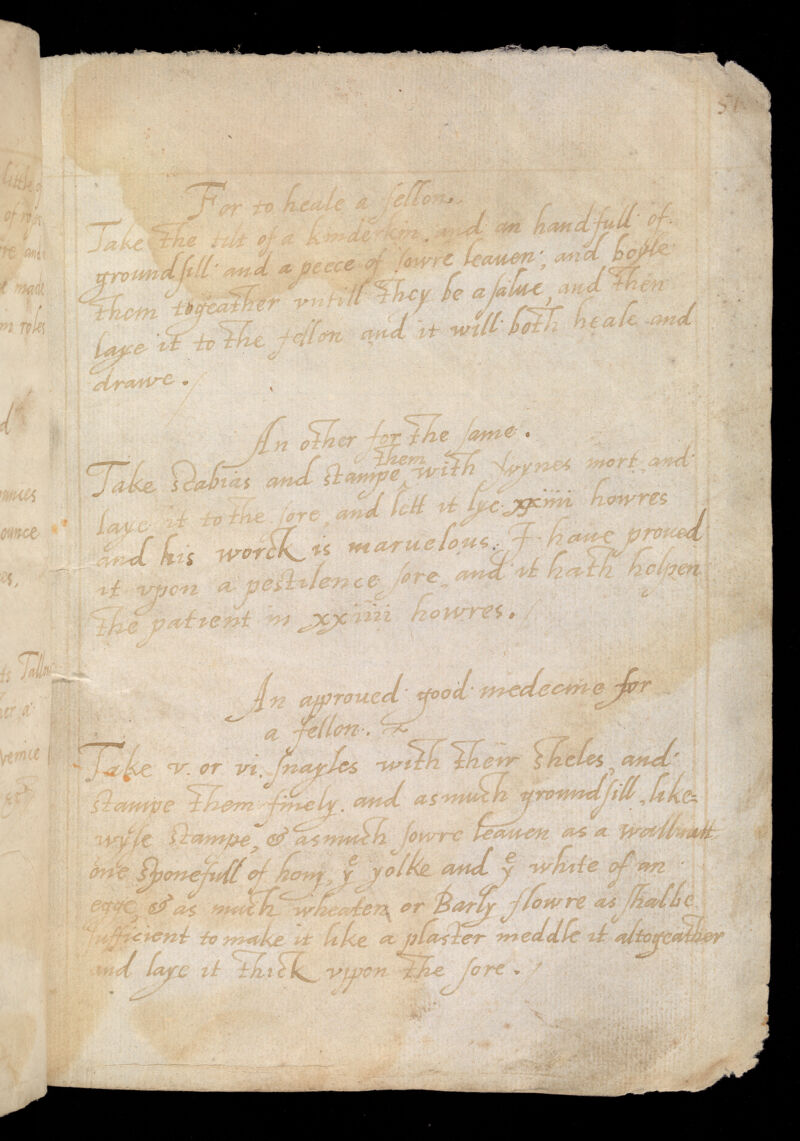 51
For to heale a fellon.
Take the tilt of a kinderkin, and an handfull of
groundsill and a peece of sowre leauen, and boyle
them togeather vntill they be a salue, and then
laye it to the fellon and it will both heale and
drawe.
An other for the same.
Take scabias and stampe them with swynes mort and
laye it to the sore, and lett it lye xxiiii howres
and his worck is maruelous. I haue proued
it vpon a pestilence sore, and it hath holpen
the patient in xxiiii howres.
An approued good medecine for
a fellon.
Take v. or vi. snayles with their sheles, and
stampe them finely. and asmuch groundsill, like-
wyse stampe, & asmuch sowre leauen as a wallnutt
one sponefull of hony, ye yolke and ye white of an
egge, & as much wheaten or Barly flowre as shalbe
sufficient to make it like a plaster meddle it altogeather
and laye it thick vpon the sore.